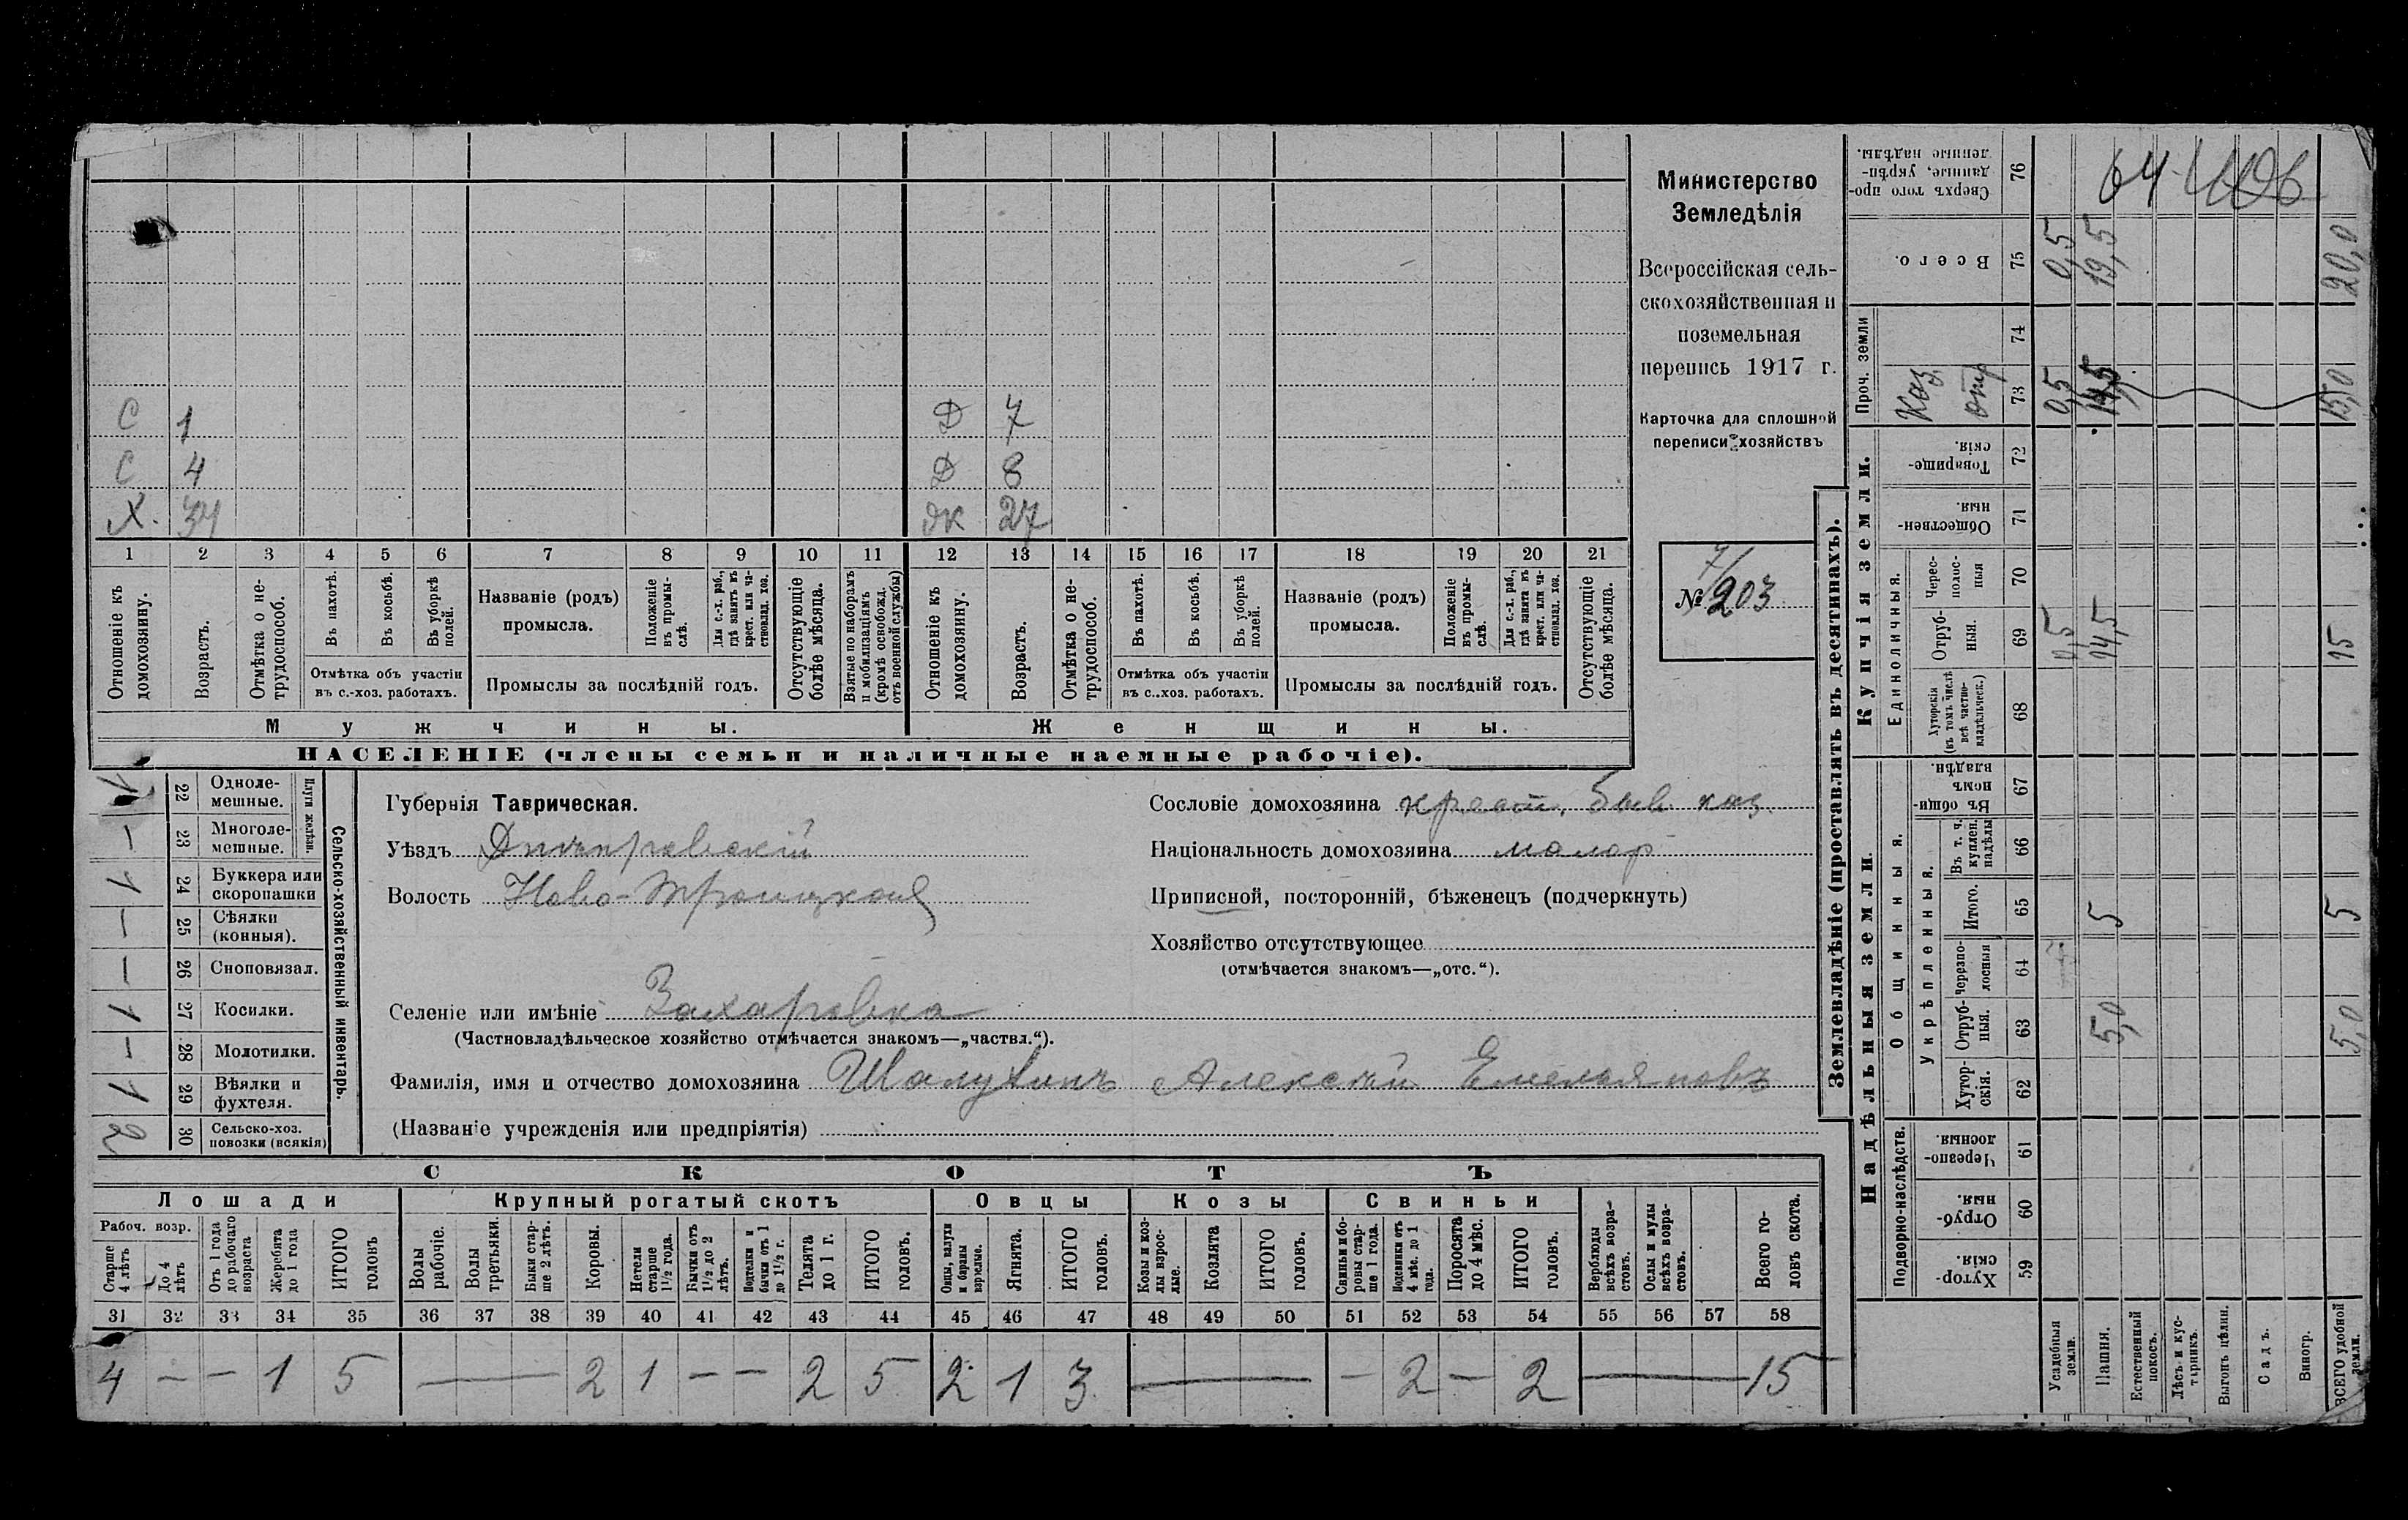 Министерство
Земледѣлія
Всероссійская сель-
скохозяйственная и
поземельная
перепись 1917 г.
Карточка для сплошной
переписи хозяйствъ
№ 7/203
С 1 Д 7
С 4 Д 8
Х. 34 Ж 27
1 2 3 4 5 6 7 8 9 10 11 12 13 14 15 16 17 18 19 20 21
Отношеніе къ домохозяину.
Возрастъ.
Отмѣтка о не-трудоспособ.
Въ пахотѣ.
Въ косьбѣ.
Въ уборкѣ полей.
Отмѣтка объ участіи
въ с.-хоз. работахъ.
Названіе (родъ)
промысла.
Положеніе въ промы-слѣ.
Для с.-х. раб., гдѣ занятъ въ крест. или ча-стновлад. хоз.
Промыслы за послѣдній годъ.
Отсутствующіе болѣе мѣсяца.
Взятые по наборамъ и мобилизаціямъ (кромѣ освобожд. отъ военной службы)
Отношеніе къ домохозяину.
Возрастъ.
Отмѣтка о не-трудоспособ.
Въ пахотѣ.
Въ косьбѣ.
Въ уборкѣ полей.
Отмѣтка объ участіи
въ с..хоз. работахъ.
Названіе (родъ)
промысла.
Положеніе въ промы-слѣ.
Для с.-х. раб., гдѣ занята въ крест. или ча-стновлад. хоз.
Промыслы за послѣдній годъ.
Отсутствующіе болѣе мѣсяца.
Мужчины. Женщины.
НАСЕЛЕНІЕ (члены семьи и наличные наемные рабочіе).
Сельско-хозяйственный инвентарь.
Плуги желѣзн.
1 22 Одноле-мешные.
— 23 Многоле-мешные.
1 24 Буккера или скоропашки
— 25 Сѣялки (конныя).
— 26 Сноповязал.
1 27 Косилки.
— 28 Молотилки.
1 29 Вѣялки и фухтеля.
2 30 Сельско-хоз. повозки (всякія)
Губернія Таврическая.
Уѣздъ Днѣпровскій
Волость Ново-Троицкая
Селеніе или имѣніе Захаровка
(Частновладѣльческое хозяйство отмѣчается знакомъ—„частвл.“).
Фамилія, имя и отчество домохозяина Алексѣй Емельяновъ
(Названіе учрежденія или предпріятія)
Сословіе домохозяина крест. быв. каз.
Національность домохозяина малор
Приписной, посторонній, бѣженецъ (подчеркнуть)
Хозяйство отсутствующее
(отмѣчается знакомъ—„отс.“).
СКОТЪ
Лошади Крупный рогатый скотъ Овцы Козы Свиньи
Рабоч. возр.
Старше 4 лѣтъ
До 4 лѣтъ
Отъ 1 года до рабочаго возраста
Жеребята до 1 года
ИТОГО головъ
Волы рабочіе.
Волы третьяки.
Быки стар-ше 2 лѣтъ.
Коровы.
Нетели старше 1½ года.
Бычки отъ 1½ до 2 лѣтъ.
Подтелки и бычки отъ 1 до 1½ г.
Телята до 1 г.
ИТОГО головъ.
Овцы, валухи и бараны взрослые.
Ягнята.
ИТОГО головъ.
Козы и коз-лы взрос-лые.
Козлята
ИТОГО головъ.
Свиньи и бо-ровы стар-ше 1 года.
Подсвинки отъ 4 мѣс. до 1 года.
Поросята до 4 мѣс.
ИТОГО головъ.
Верблюды всѣхъ возра-стовъ.
Ослы и мулы всѣхъ возра-стовъ.
Всего го-ловъ скота.
31 32 33 34 35 36 37 38 39 40 41 42 43 44 45 46 47 48 49 50 51 52 53 54 55 56 57 58
4 — — 1 5 — 2 1 — — 2 5 2 1 3 — — 2 — 2 — 15
Землевладѣніе (проставлять въ десятинахъ).
Надѣльныя земли. Купчія земли. Проч. земли
Подворно-наслѣдств.
Общинныя.
Укрѣпленныя.
Единоличныя.
Хутор-скія. 59
Отруб-ныя. 60
Черезпо-лосныя. 61
Хутор-скія. 62
Отруб-ныя. 63
Черезпо-лосныя 64
Итого. 65
Въ т. ч. куплен. надѣлы 66
Въ общи-номъ владѣн. 67
Хуторскія (въ томъ числѣ всѣ частно-владѣльческ.) 68
Отруб-ныя. 69
Черес-полос-ныя 70
Обществен-ныя. 71
Товарище-скія. 72
Каз. отр 73
74
Всего. 75
Сверхъ того про-данные, укрѣп-ленные надѣлы. 76
Усадебныя земли. 0,5 0,5 0,5
Пашня. 5,0 5 14,5 14,5 19,5
Естественный покосъ.
Лѣсъ и кус-тарникъ.
Выгонъ цѣлин.
Садъ.
Виногр.
ВСЕГО удобной земли. 5,0 5 15 15,0 20,0
64